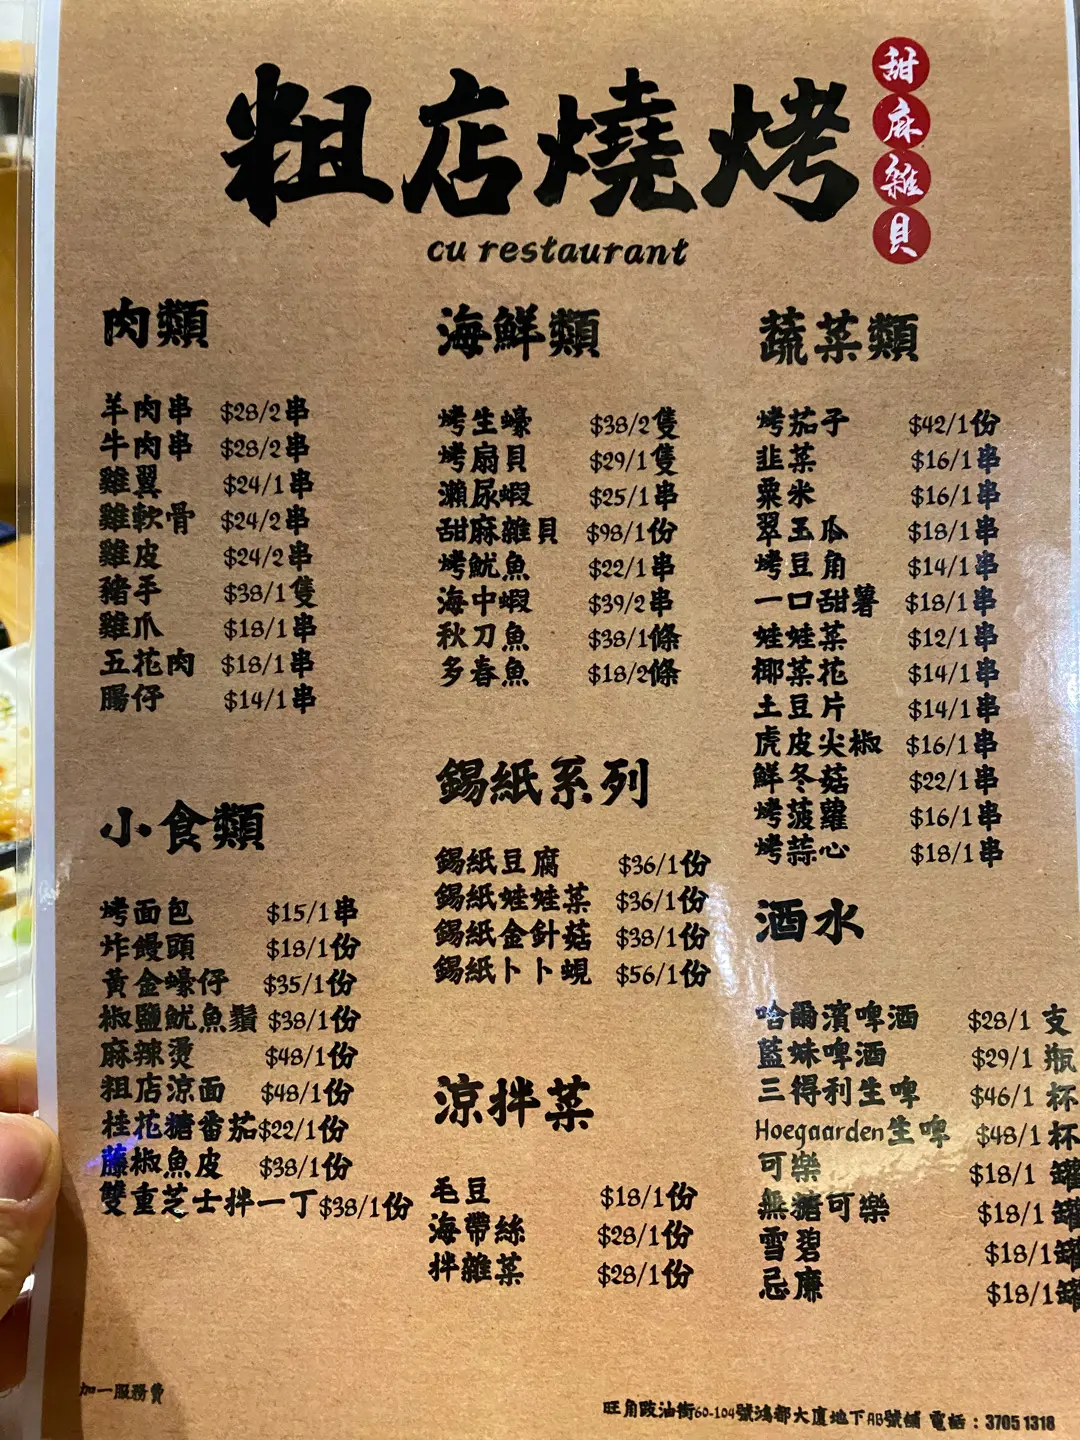 粗店燒烤
甜麻雜貝
cu restaurant
肉類
羊肉串 $28/2串
牛肉串 $28/2串
雞翼 $24/1串
雞軟骨 $24/2串
雞皮 $24/2串
豬手 $38/1隻
雞爪 $18/1串
五花肉 $18/1串
腸仔 $14/1串
小食類
烤面包 $15/1串
炸饅頭 $18/1份
黃金蠔仔 $35/1份
椒鹽魷魚鬚 $38/1份
麻辣燙 $48/1份
粗店涼面 $48/1份
桂花糖番茄 $22/1份
藤椒魚皮 $38/1份
雙重芝士拌一丁 $38/1份
海鮮類
烤生蠔 $38/2隻
烤扇貝 $29/1隻
瀨尿蝦 $25/1串
甜麻雜貝 $98/1份
烤魷魚 $22/1串
海中蝦 $39/2串
秋刀魚 $38/1條
多春魚 $18/2條
錫紙系列
錫紙豆腐 $36/1份
錫紙娃娃菜 $36/1份
錫紙金針菇 $38/1份
錫紙卜卜蜆 $56/1份
涼拌菜
毛豆 $18/1份
海帶絲 $28/1份
拌雜菜 $28/1份
蔬菜類
烤茄子 $42/1份
韭菜 $16/1串
粟米 $16/1串
翠玉瓜 $18/1串
烤豆角 $14/1串
一口甜薯 $18/1串
娃娃菜 $12/1串
椰菜花 $14/1串
土豆片 $14/1串
虎皮尖椒 $16/1串
鮮冬菇 $22/1串
烤菠蘿 $16/1串
烤蒜心 $18/1串
酒水
哈爾濱啤酒 $28/1 支
藍妹啤酒 $29/1 瓶
三得利生啤 $46/1 杯
Hoegaarden生啤 $48/1 杯
可樂 $18/1 罐
無糖可樂 $18/1 罐
雪碧 $18/1罐
忌廉 $18/1罐
加一服務費
旺角豉油街60-104號鴻都大廈地下AB號鋪 電話：3705 1318